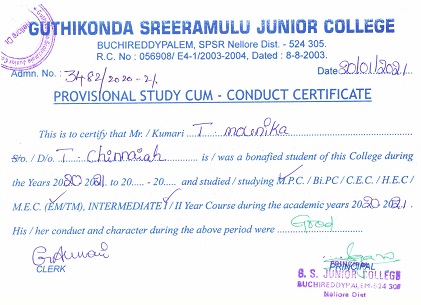 GUTHIKONDA SREERAMULU JUNIOR COLLEGE
BUCHIREDDYPALEM, SPSR Nellore Dist. - 524 305.
R.C. No : 056908/ E4-1/2003-2004, Dated : 8-8-2003.
Admn. No : 3482/2020-21 Date 20/01/2021
PROVISIONAL STUDY CUM - CONDUCT CERTIFICATE
This is to certify that Mr. / Kumari T mounika
S/o. / D/o. T. Chinnaiah is / was a bonafied student of this College during
the Years 2020 2021 to 20..... - 20..... and studied / studying M.P.C. / Bi.PC / C.E.C. / H.E.C /
M.E.C. (EM/TM), INTERMEDIATE I / II Year Course during the academic years 2020 2021.
His / her conduct and character during the above period were : Good
CLERK
PRINCIPAL
PRINCIPAL
G. S. JUNIOR COLLEGE
BUCHIREDDYPALEM-524 305
Nellore Dist